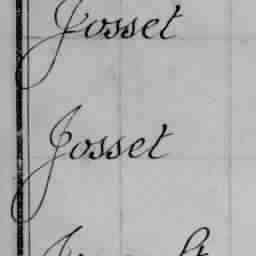 Josset
Josset